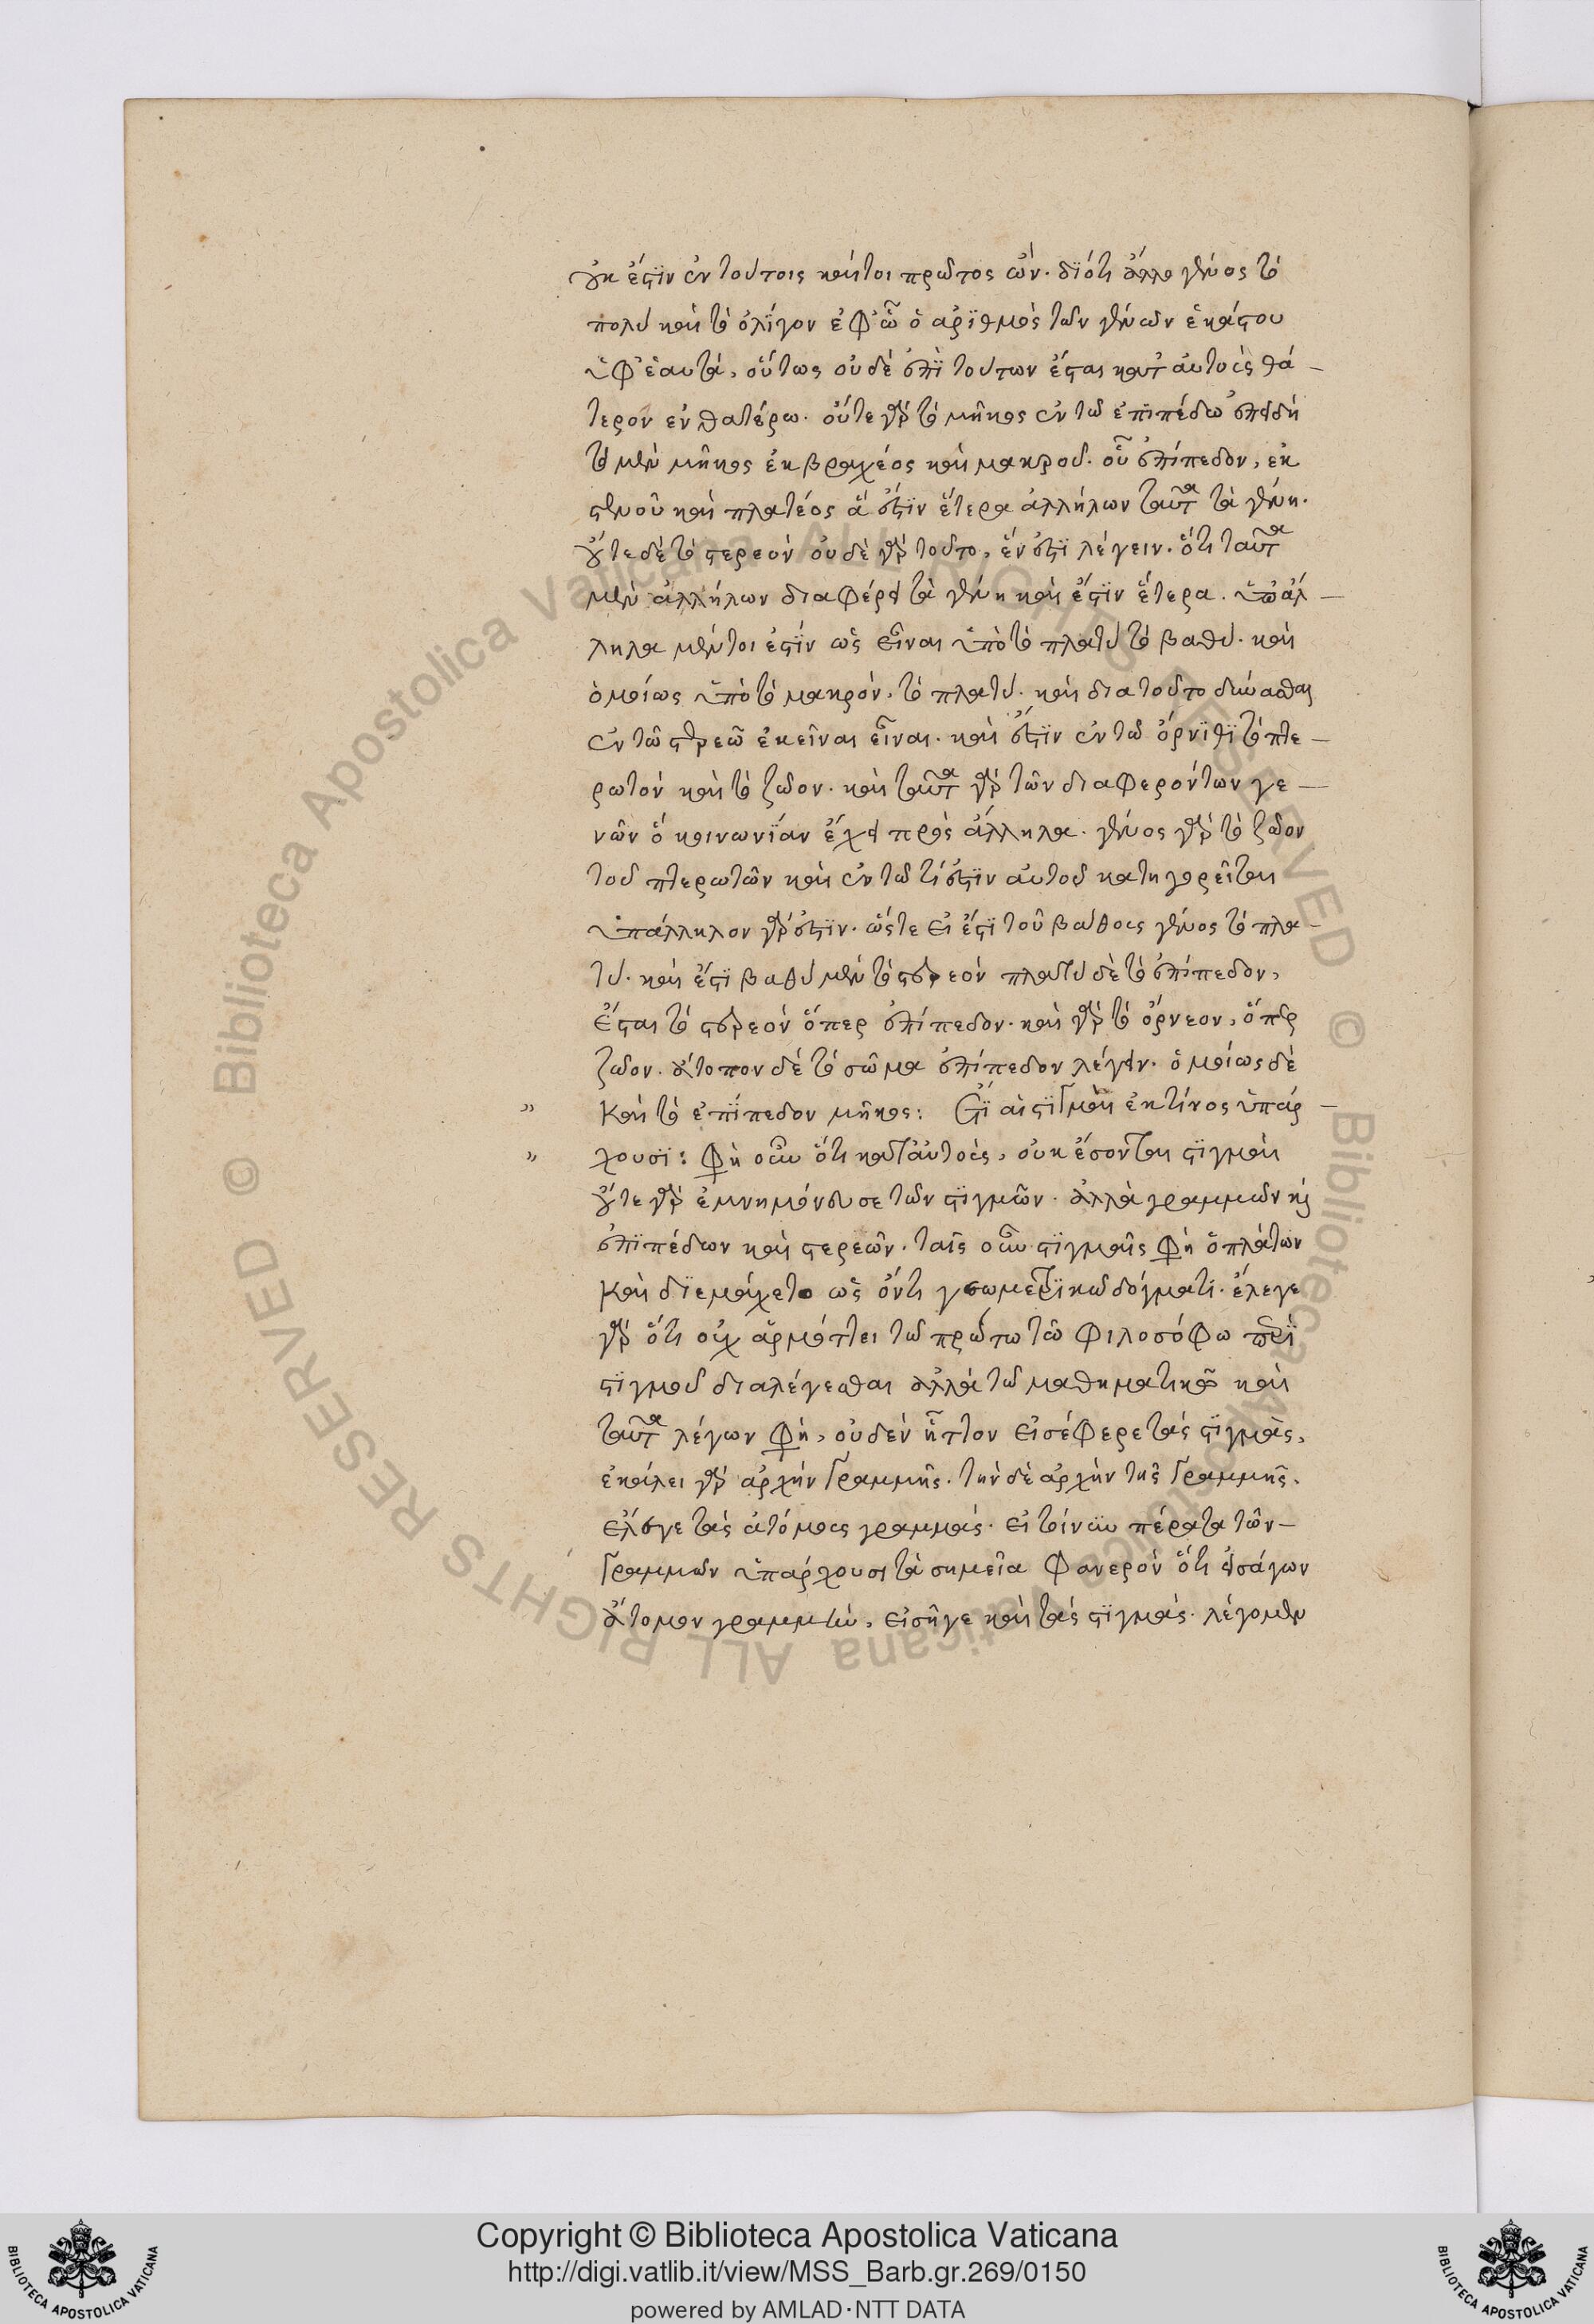 οὐκ ἔστιν ἐν τούτοις καίτοι πρῶτος ὤν. διότι ἄλλο γένος τὸ
πολὺ καὶ τὸ ὀλίγον ἐφ' ᾧ ὁ ἀριθμὸς τῶν γενῶν ἑκάστου
ὑφ' ἑαυτά, οὕτως οὐδὲ ἐπὶ τούτων ἔσται κατ' αὐτοὺς θά-
τερον ἐν θατέρω. οὔτε γὰρ τὸ μῆκος ἐν τῶ ἐπιπέδω ἐπειδὴ
τὸ μὲν μῆκος ἐκ βραχέος καὶ μακροῦ. οὗ ἐπίπεδον, ἐκ
στενοῦ καὶ πλατέος ἅ ἐστιν ἕτερα ἀλλήλων ταῦτα τὰ γένη.
οὔτε δὲ τὸ στερεὸν οὐδὲ γὰρ τοῦτο, ἕν ἐστι λέγειν. ὅτι ταῦτα
μὲν ἀλλήλων διαφέρει τὰ γένη καὶ ἔστιν ἕτερα. ὑπ' ἄλ-
ληλα μέντοι ἐστὶν ὡς εἶναι ὑπὸ τὸ πλατὺ τὸ βαθύ. καὶ
ὁμοίως ὑπὸ τὸ μακρόν, τὸ πλατύ. καὶ διατοῦτο δύνασθαι
ἐν τῶ στερεῶ ἐκεῖναι εἶναι. καὶ ἔστιν ἐν τῶ ὄρνιθι τὸ πτε-
ρωτὸν καὶ τὸ ζῶον. καὶ ταῦτα γὰρ τῶν διαφερόντων γε-
νῶν ὃ κοινωνίαν ἔχει πρὸς ἄλληλα. γένος γὰρ τὸ ζῶον
τοῦ πτερωτῶν καὶ ἐν τῶ τί ἐστιν αὐτοῦ κατηγορεῖται
ὑπάλληλον γάρ ἐστιν. ὥστε εἰ ἔστι τοῦ βάθους γένος τὸ πλα
τύ. καὶ ἔστι βαθὺ μὲν τὸ στερεὸν πλατὺ δὲ τὸ ἐπίπεδον,
ἔσται τὸ στερεὸν ὅπερ ἐπίπεδον. καὶ γὰρ τὸ ὄρνεον, ὅπερ
ζῶον. ἄτοπον δὲ τὸ σῶμα ἐπίπεδον λέγειν. ὁμοίως δὲ
" Καὶ τὸ ἐπίπεδον μῆκος: Ἔτι αἱ στιγμαὶ ἐκ τίνος ὑπάρ-
" χουσι: Φησὶν οὖν ὅτι κατ' αὐτοὺς, οὐκ ἔσονται στιγμαὶ
οὔτε γὰρ ἐμνημόνευσε τῶν στιγμῶν. ἀλλὰ γραμμῶν καὶ
ἐπιπέδων καὶ στερεῶν. ταῖς οὖν στιγμαῖς φησὶν ὁ πλάτων
Καὶ διεμάχετο ὡς ὄντι γεωμετρικῶ δόγματι. ἔλεγε
γὰρ ὅτι οὐχ ἁρμόττει τῶ πρώτω τῶ φιλοσόφω περὶ
στιγμοῦ διαλέγεσθαι ἀλλὰ τῶ μαθηματικῶ καὶ
ταῦτα λέγων φησὶν, οὐδὲν ἧττον εἰσέφερε τὰς στιγμὰς,
ἐκάλει γὰρ ἀρχὴν γραμμῆς. τὴν δὲ ἀρχὴν τῆς γραμμῆς.
ἔλεγε τὰς ἀτόμους γραμμάς. εἰ τοίνυν πέρατα τῶν-
γραμμῶν ὑπάρχουσι τὰ σημεῖα φανερὸν ὅτι εἰσάγων
ἄτομον γραμμὴν, εἰσῆγε καὶ τὰς στιγμάς. λέγομεν
Copyright © Biblioteca Apostolica Vaticana
http://digi.vatlib.it/view/MSS_Barb.gr.269/0150
powered by AMLAD·NTT DATA